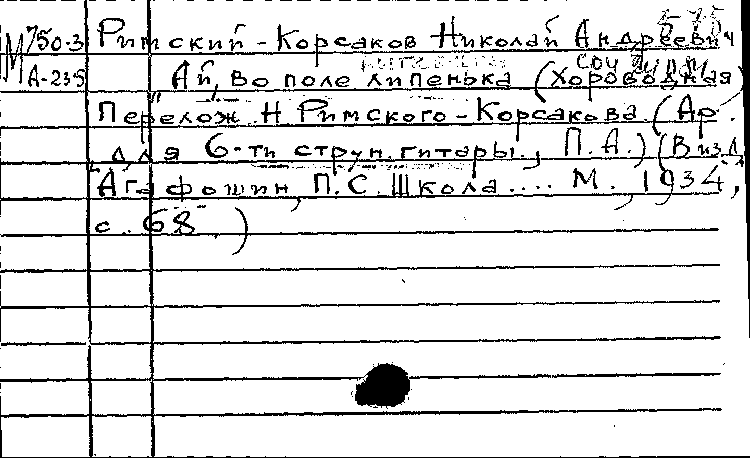 М 750-3 Римский-Корсаков Николай Андреевич
А-235 Ай, во поле липенька (Хороводная)
Перелож. Н Римского-Корсакова. (Ар.
для 6-ти струн. гитары., П.А.) (В изд.
Агафошин, П.С. Школа.... М., 1934,
с. 68.)